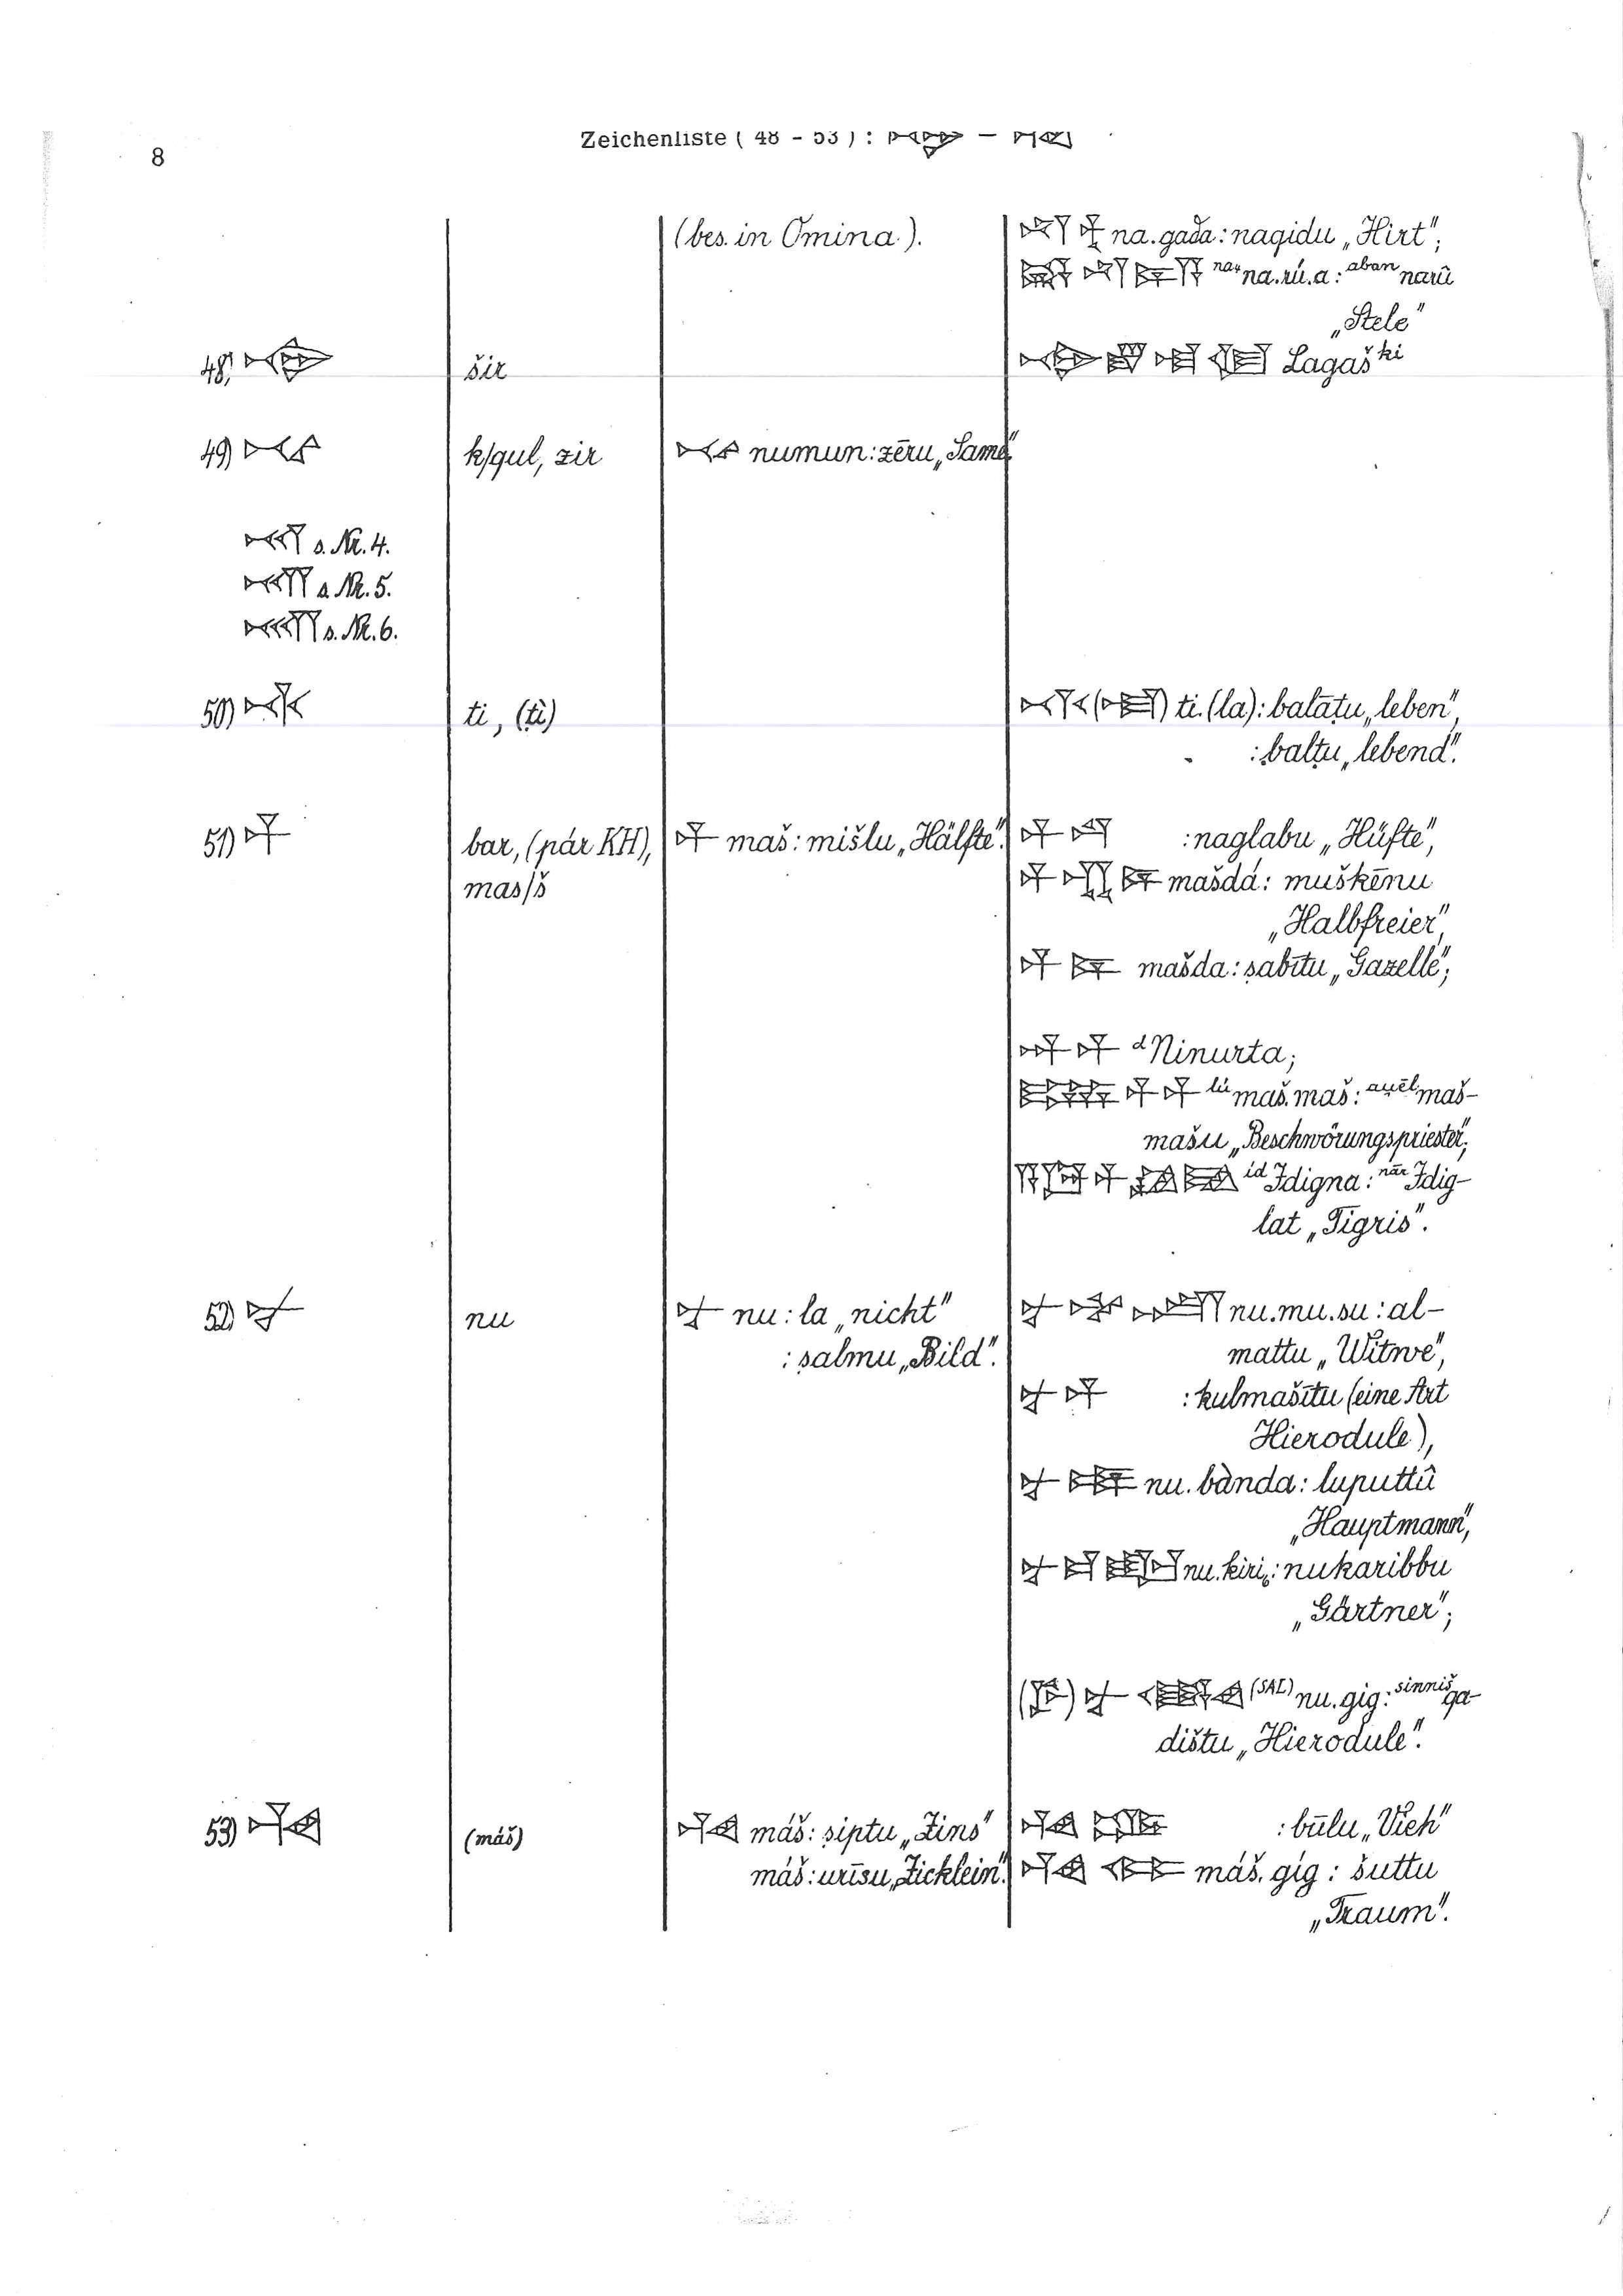 8
Zeichenliste ( 48 - 53 ) : —
(bes. in Omina).
na.gada: nāqidu „Hirt“;
na₄na.rú.a: aban narû
„Stele“
48) šir Lagaš ki
49) k/qul, zir numun: zēru „Same“
s. Nr. 4.
s. Nr. 5.
s. Nr. 6.
50) ti, (ṭì) ti.(la): balāṭu „leben“,
: balṭu „lebend“.
51) bar, (pár KH), maš: mišlu „Hälfte“. : naglabu „Hüfte“,
mas/š mašdá: muškēnu
„Halbfreier“,
mašda: ṣabītu „Gazelle“;
d Ninurta;
lú maš.maš: au̯ēl maš-
mašu „Beschwörungspriester“;
íd Idigna: nār Idig-
lat „Tigris“.
52) nu nu: la „nicht“ nu.mu.su: al-
: ṣalmu „Bild“. mattu „Witwe“,
: kulmašītu (eine Art
Hierodule),
nu.bànda: luputtû
„Hauptmann“,
nu.kiri₆: nukaribbu
„Gärtner“;
( ) (SAL) nu.gig: sinniš qa-
dištu „Hierodule“.
53) (máš) máš: ṣiptu „Zins“ : būlu „Vieh“
máš: urīṣu „Zicklein“. máš.gíg: šuttu
„Traum“.